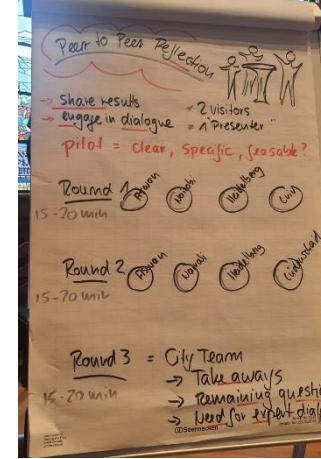 Peer to Peer Reflection
→ Share results
→ engage in dialogue
→ 2 visitors
= 1 Presenter"
pilot = clear, specific, feasable?
Round 1
Aswan
Nairobi
Heidelberg
15-20 min
Round 2
Aswan
Nairobi
Heidelberg
15-20 min
Round 3 = City Team
→ Take aways
15-20 min
→ Remaining questi
→ Need for expert dial
Soennecken